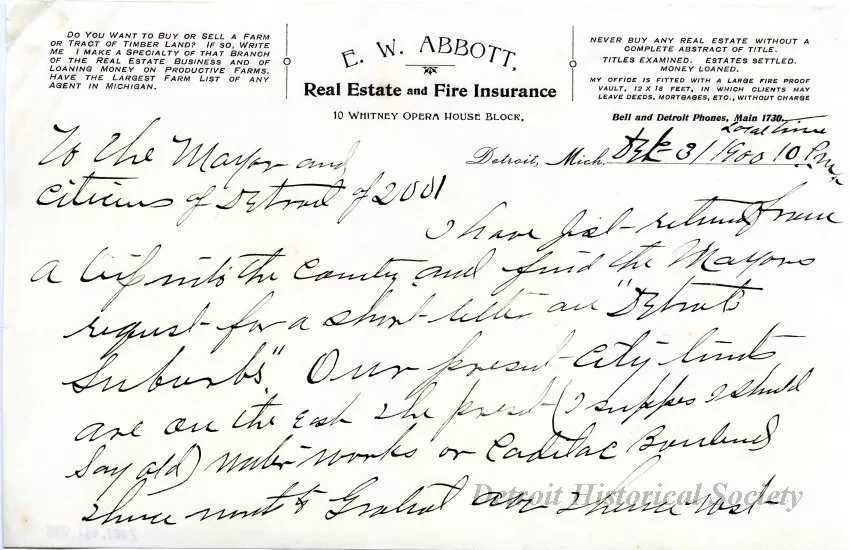 DO YOU WANT TO BUY OR SELL A FARM
OR TRACT OF TIMBER LAND? IF SO, WRITE
ME I MAKE A SPECIALTY OF THAT BRANCH
OF THE REAL ESTATE BUSINESS AND OF
LOANING MONEY ON PRODUCTIVE FARMS.
HAVE THE LARGEST FARM LIST OF ANY
AGENT IN MICHIGAN.
E. W. ABBOTT,
Real Estate and Fire Insurance
10 WHITNEY OPERA HOUSE BLOCK,
NEVER BUY ANY REAL ESTATE WITHOUT A
COMPLETE ABSTRACT OF TITLE.
TITLES EXAMINED. ESTATES SETTLED.
MONEY LOANED.
MY OFFICE IS FITTED WITH A LARGE FIRE PROOF
VAULT, 12 X 18 FEET, IN WHICH CLIENTS MAY
LEAVE DEEDS, MORTGAGES, ETC., WITHOUT CHARGE
Bell and Detroit Phones, Main 1730.
Local Time
Detroit, Mich. Dec 31 1900 10 P.m.
To the Mayor and
Citizens of Detroit of 2001
I have just returned from
a trip into the County and find the Mayors
request for a short letter on "Detroits
Suburbs". Our present City limits
are on the East the present (I suppose I should
say old) water works or Cadillac Boulevard
thence north to Gratiot ave thence West
Detroit Historical Society